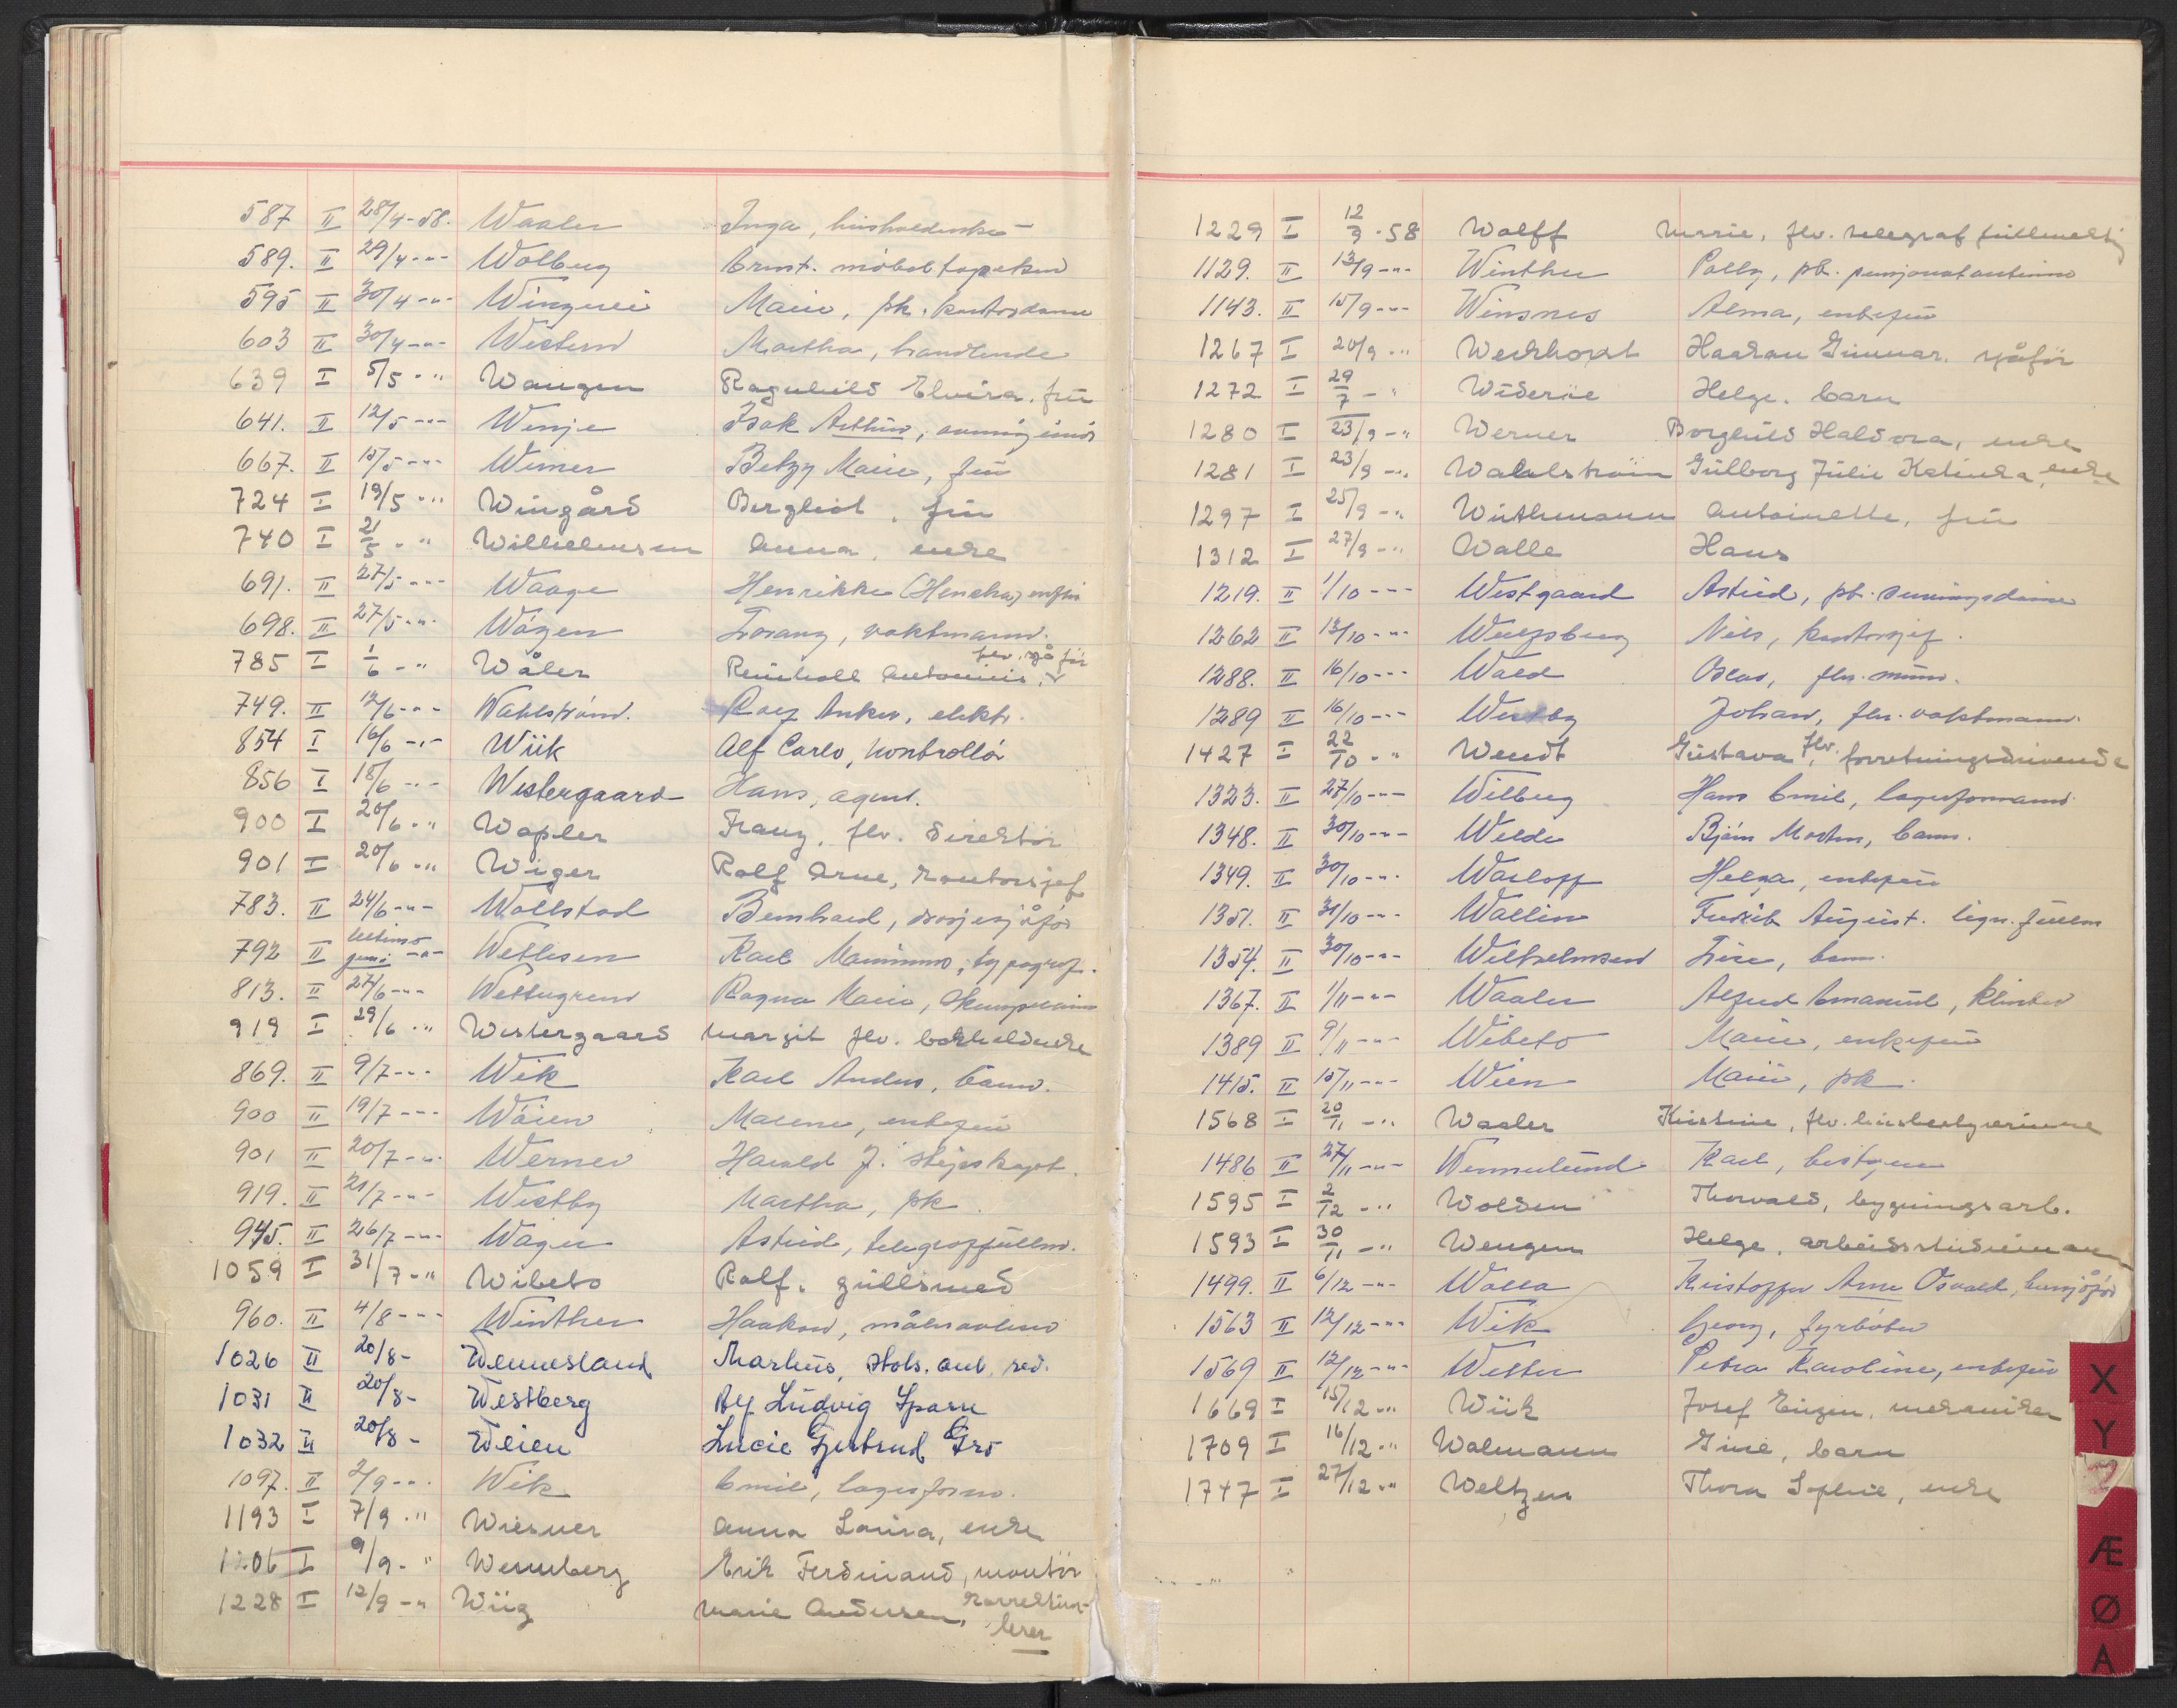 587 II 28/4-58. Waaler Inga, husholderske
589. II 29/4 -"- Wolberg Ernst. møbeltapetserer
595 II 30/4 -"- Winguei Marie, pk. kontordame
603 II 30/4 -"- Western Martha, handlende
639 I 5/5 - " Wangen Ragnhild Elvira. frü
641. II 12/5 -"- Winje Isak Arthur,
667. II 15/5 -"- Werner Betzy Marie, frü
724 I 19/5 -" Wingård Bergliot, frü
740 I 21/5 - " Wilhelmsen Anna, enke
691. II 27/5 -"- Waage Henrikke (Hencha) enkefrü
698. II 27/5 -"- Wågen Lorang, vaktmann.
785 I 1/6 - " Wåler Reinholl Antonius, flv. sjåför
749. II 12/6 -"- Wahlstrøm. Roey Anker, elektr.
854 I 16/6 -"- Wiik Alf Carlo, kontrollør
856 I 18/6 -"- Westergaard Hans, agent.
900 I 20/6 - " Wapler Franz, flv. direktør
901 I 20/6 - " Wiger Rolf Arne, kontorsjef
783. II 24/6 -"- Wollstad Bernhard, drosjesjåfør
792 II ultimo juni -"- Wethesen Karl Marinius, typograf.
813. II 27/6 -"- Wettergren Ragna Marie,
919 I 29/6 - " Westergaard Margit flv. bokholderske
869. II 9/7 -"- Wik Karl Anders, barn.
900 II 19/7 -"- Wøien Malene, enkefrü
901 II 20/7 -"- Werner Harald J. skipskapt.
919. II 21/7 -"- Westby Martha, pk.
945. II 26/7 -"- Wager Astrid, telegraffüllm.
1059 I 31/7 - " Wibeto Rolf. güllsmed
960. II 4/8 -"- Winther Haakon,
1026 II 20/8 - Wennesland Markus, stats. aut. rev.
1031 II 20/8 - Westberg Alf Lüdvig Sparre
1032 II 20/8 - Weien Lucie Gjertrud Gro
1097. II 2/9 -"- Wik Emil, lagerform.
1193 I 7/9 - " Wiesner Anna Lovisa, enke
1206 I 9/9 - " Wennberg Erik Ferdinand, montör
1228 I 12/9 - " Wiig Marie Andersen, korrektür-
leser
1229 I 12/9 - 58 Wolff Marie, flv. telegraffüllmektig
1129. II 13/9 -"- Winther Polly, pk. pensjonatinnehaverinne
1143. II 15/9 -"- Winsnes Alma, enkefrü
1267 I 20/9 - " Weckhorst Haakon Günnar. sjåför
1272 I 29/7 - " Wideröe Helge. barn
1280 I 23/9 - " Werner Borghild Haldora, enke
1281 I 23/9 - " Wahlström Gülborg Jülie Katinka, enke
1297 I 25/9 - " Wüthmann Antoinette, frü
1312 I 27/9 - " Walle Hans
1219. II 1/10 -"- Westgaard Astrid, pk.
1262 II 13/10 -"- Wulfsberg Nils, kontorsjef.
1288. II 16/10 -"- Wold Oskar, flv. mürer.
1289 II 16/10 -"- Westby Johan, flv. vaktmann.
1427 I 22/10 - " Wendt Güstava, flv. forretningsdrivende
1323. II 27/10 -"- Wilberg Hans Emil, lagerformann
1348. II 30/10 -"- Welde Bjørn Morten, barn.
1349. II 30/10 -"- Warloff Helga, enkefrü
1351. II 31/10 -"- Wallin Fredrik Aügüst. lign. füllm
1354. II 30/10 -"- Wilhelmsen Lise, barn.
1367. II 1/11 -"- Waaler Alfred Emanuel,
1389 II 9/11 -"- Wibeto Marie, enkefrü
1415. II 15/11 -"- Wien Marie, pk.
1568 I 20/11 - " Waaler Kristine, flv. hüsbestyrerinne
1486 II 27/11 -"- Wennerlund Karl, bestyrer
1595 I 2/12 - " Wolden Thorvald, bygningsarb.
1593 I 30/11 - " Wengen Helge. arbeidsstüdiemann
1499. II 6/12 -"- Wolla Kristoffer Arne Osvald,
1563 II 12/12 -"- Wik Georg, fyrbøter
1569 II 12/12 -"- Wetter Petra Karoline, enkefrü
1669 I 15/12 -" Wiik Josef Eügen. mekaniker
1709 I 16/12 -" Walmann Gine, barn
1747 I 27/12 -" Weltzen Thora Sophie, enke
X
Y
Z
Æ
Ø
A